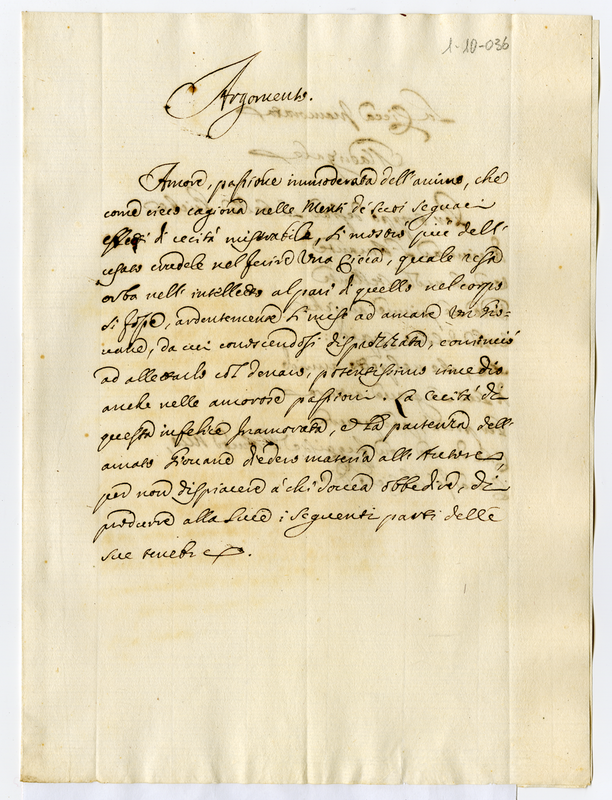 1-10-036
Argomento.
Amore, passione immoderata dell'animo, che
come cieco cagiona nelle Menti de' suoi seguaci
effetti di cecità miserabile, si mostrò più dell'
usato crudele nel ferire Una Cieca, quale resa
orba nell'intelletto al pari di quello nel corpo
si fosse, ardentemente si mise ad amare Un Gio-
vane, da cui conoscendosi disprezzata, cominciò
ad allettarlo col denaro, potentissimo rimedio
anche nelle amorose passioni. La Cecità di
questa infelice Inamorata, e la partenza dell'
amato Giovane diedero materia all'Autore
per non dispiacere à chi dovea obbedire, di
produrre alla Luce i seguenti parti delle
sue tenebre.